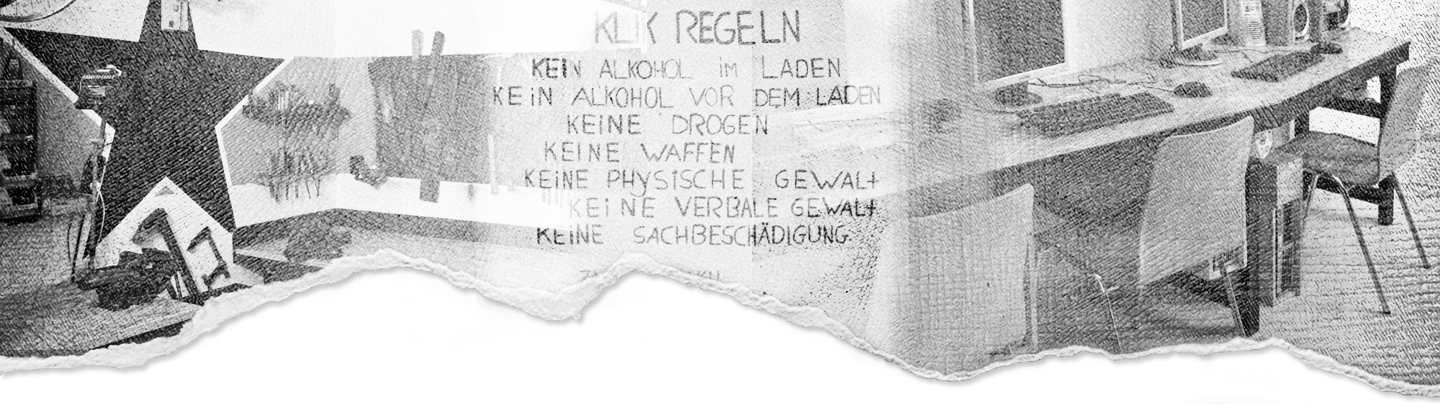 KLIK REGELN
KEIN ALKOHOL iM LADEN
KEiN ALKOHOL VOR DEM LADEN
KEINE DROGEN
KEINE WAFFEN
KEiNE PHYSISCHE GEWALt
KEiNE VERBALE GEWALt
KEINE SACHBESCHÄDIGUNG